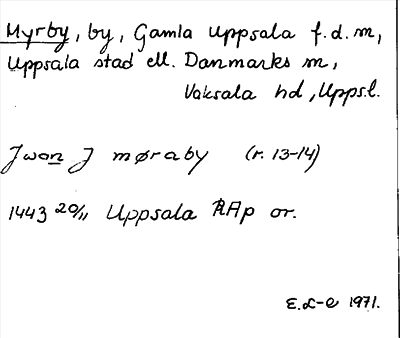 Myrby, by, Gamla Uppsala f.d. m,
Uppsala stad ell. Danmarks m,
Vaksala hd, Upps.l.
Jwan J møraby (r. 13-14)
1443 20/11 Uppsala RAp or.
E.L-e 1971.